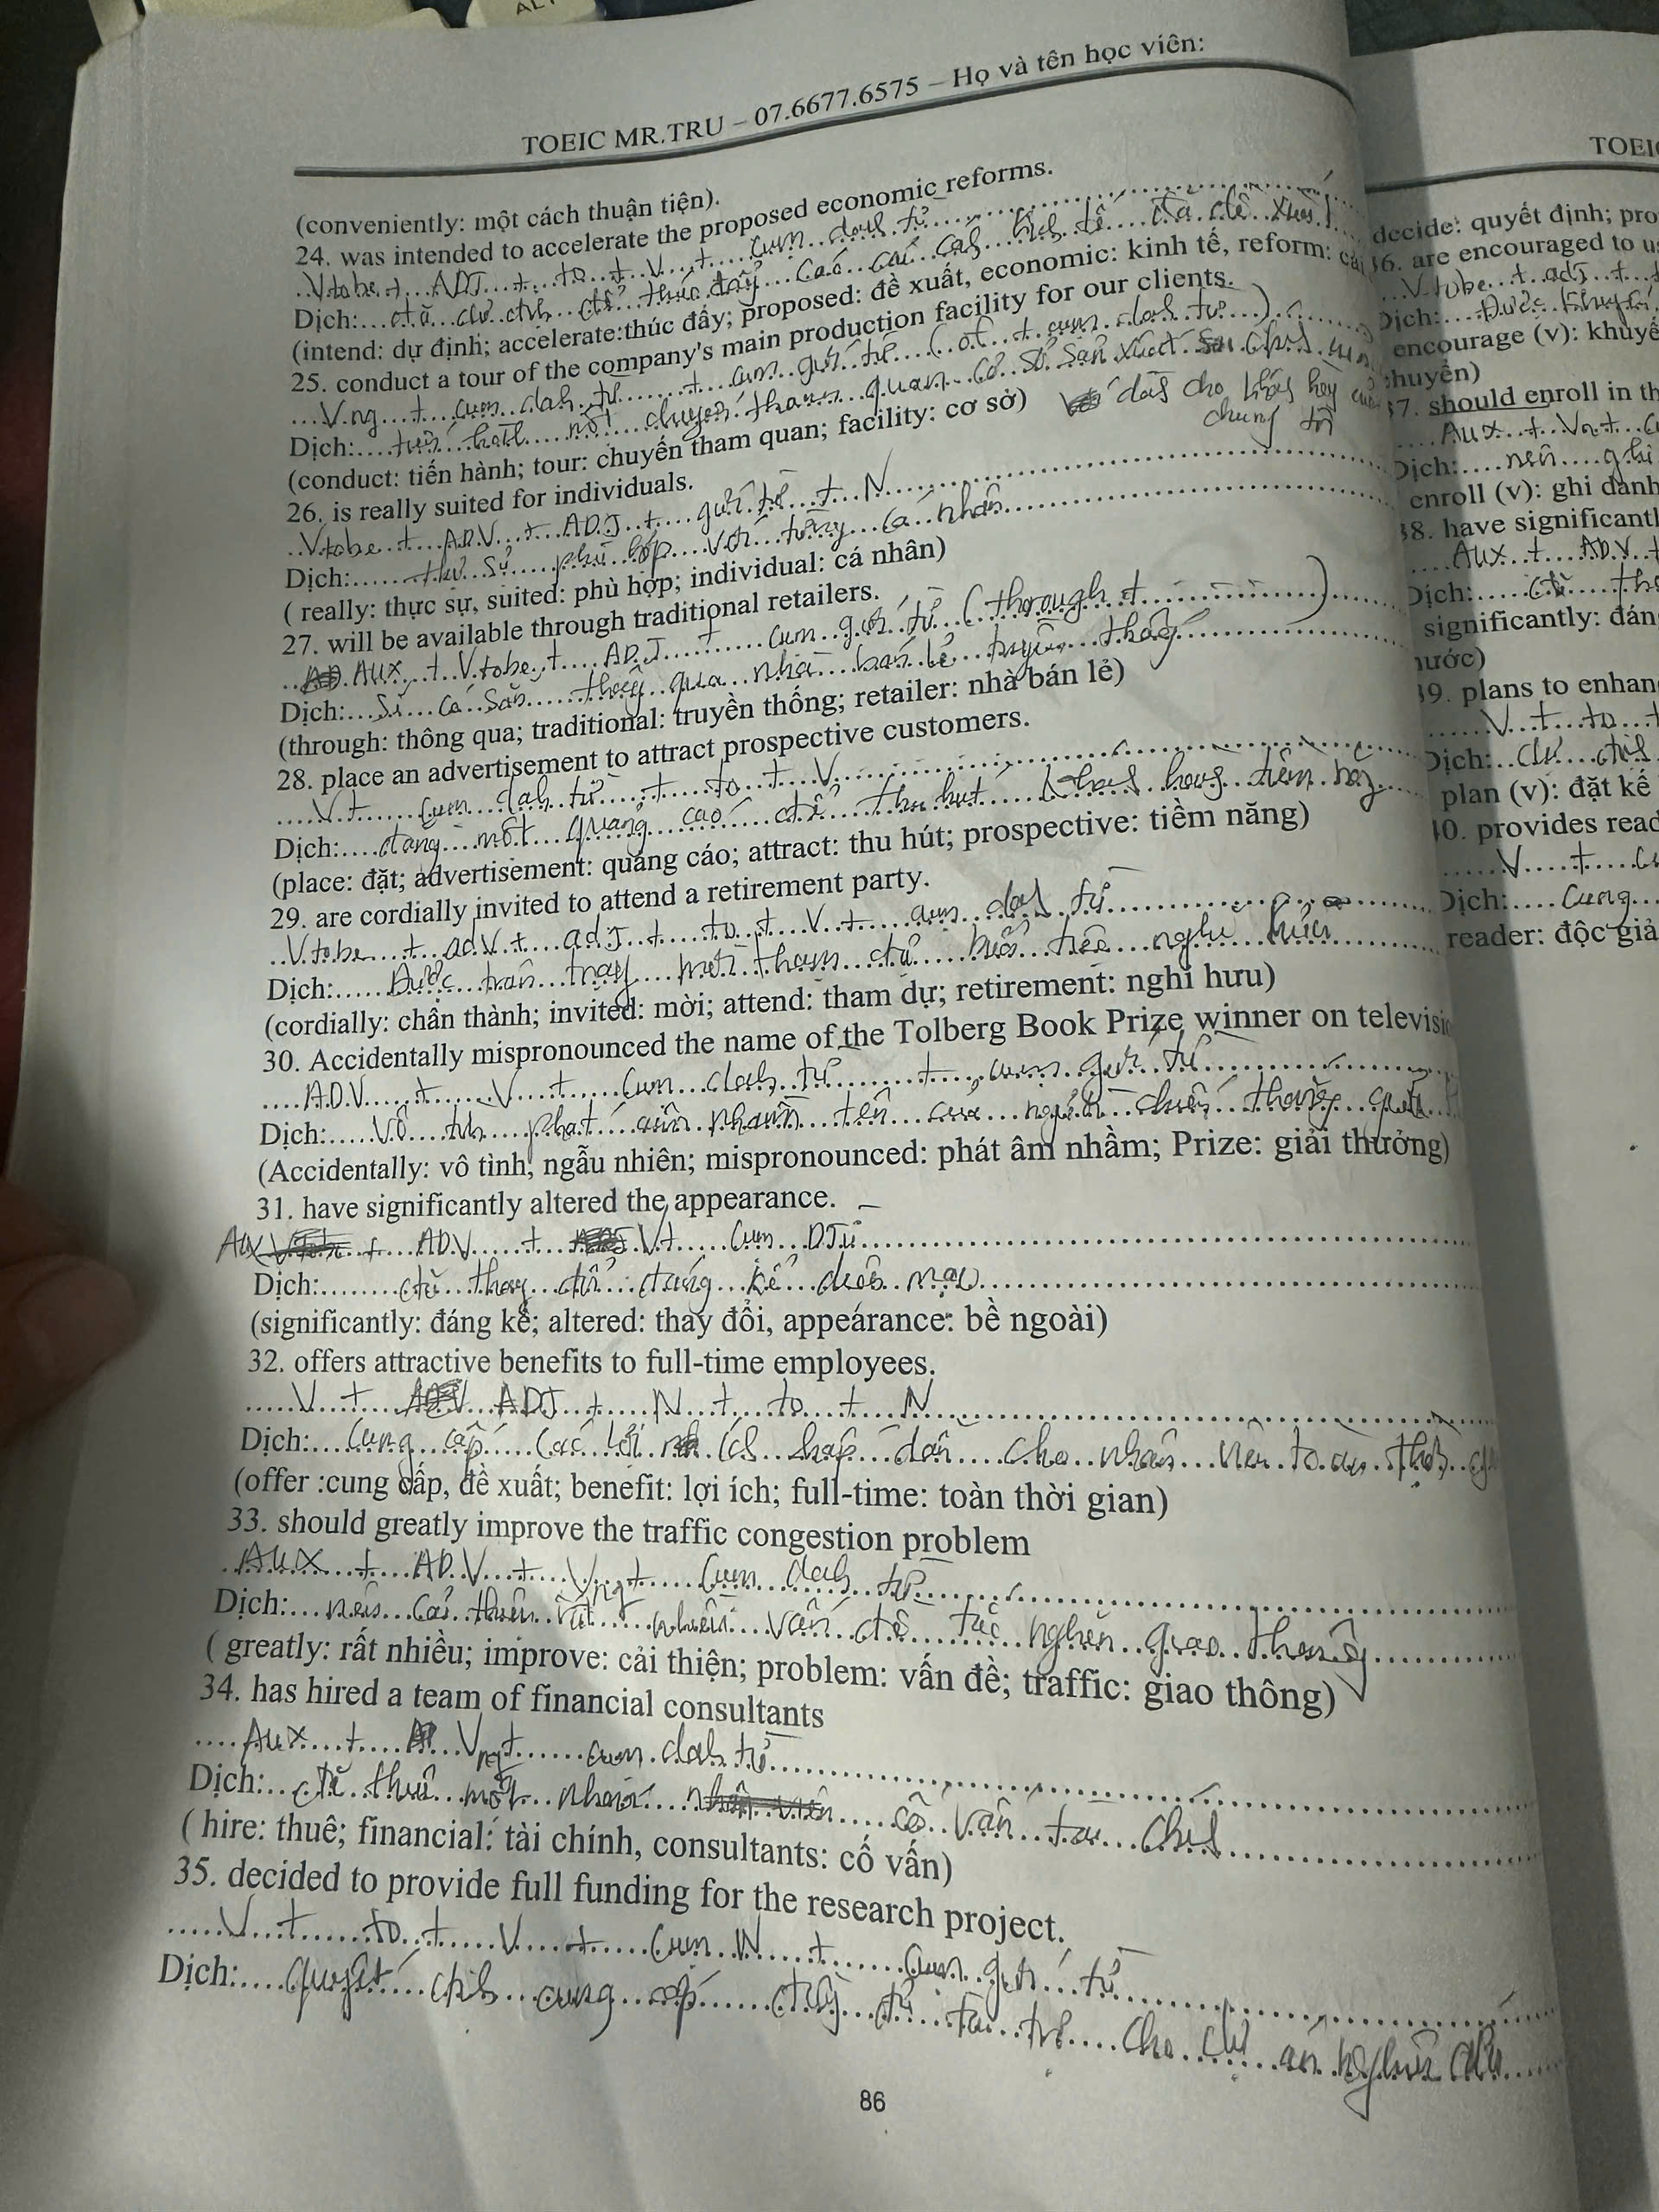 TOEIC MR.TRU – 07.6677.6575 – Họ và tên học viên:
(conveniently: một cách thuận tiện).
24. was intended to accelerate the proposed economic reforms.
Vtobe + ADJ + to + V + cụm danh từ
Dịch: đã dự định để thúc đẩy các cải cách kinh tế đã đề xuất
(intend: dự định; accelerate:thúc đẩy; proposed: đề xuất, economic: kinh tế, reform: cải
25. conduct a tour of the company's main production facility for our clients.
V.ng + cụm danh từ + cụm giới từ (of + cụm danh từ)
Dịch: tiến hành một chuyến tham quan cơ sở sản xuất
dành cho khách hàng của
chúng tôi
(conduct: tiến hành; tour: chuyến tham quan; facility: cơ sở)
26. is really suited for individuals.
Vtobe + ADV + ADJ + giới từ + N
Dịch: thực sự phù hợp với từng cá nhân
( really: thực sự, suited: phù hợp; individual: cá nhân)
27. will be available through traditional retailers.
AUX + Vtobe + ADJ cụm giới từ (thorough + )
Dịch: sẽ có sẵn thông qua nhà bán lẻ truyền thống
(through: thông qua; traditional: truyền thống; retailer: nhà bán lẻ)
28. place an advertisement to attract prospective customers.
V + cụm danh từ + to + V
Dịch: đăng một quảng cáo để thu hút khách hàng tiềm năng
(place: đặt; advertisement: quảng cáo; attract: thu hút; prospective: tiềm năng)
29. are cordially invited to attend a retirement party.
Vtobe + adv + adJ + to + V + cụm danh từ
Dịch: Được trân trọng mời tham dự buổi tiệc nghỉ hưu
(cordially: chân thành; invited: mời; attend: tham dự; retirement: nghỉ hưu)
30. Accidentally mispronounced the name of the Tolberg Book Prize winner on televisio
ADV + V + cụm danh từ + cụm giới từ
Dịch: Vô tình phát âm nhầm tên của người chiến thắng
(Accidentally: vô tình, ngẫu nhiên; mispronounced: phát âm nhầm; Prize: giải thưởng)
31. have significantly altered the appearance.
AUX + ADV + V + Cụm DTừ
Dịch: đã thay đổi đáng kể diện mạo
(significantly: đáng kể; altered: thay đổi, appearance: bề ngoài)
32. offers attractive benefits to full-time employees.
V + ADJ + N + to + N
Dịch: Cung cấp các lợi ích hấp dẫn cho nhân viên toàn thời
(offer :cung cấp, đề xuất; benefit: lợi ích; full-time: toàn thời gian)
33. should greatly improve the traffic congestion problem
AUX + ADV + Vng + Cụm danh từ
Dịch: nên cải thiện rất nhiều vấn đề tắc nghẽn giao thông
( greatly: rất nhiều; improve: cải thiện; problem: vấn đề; traffic: giao thông)
34. has hired a team of financial consultants
AUX + Vng + cụm danh từ
Dịch: đã thuê một nhóm cố vấn tài chính
( hire: thuê; financial: tài chính, consultants: cố vấn)
35. decided to provide full funding for the research project.
V + to + V + Cụm N + Cụm giới từ
Dịch: Quyết định cung cấp đầy đủ tài trợ cho dự án nghiên cứu
86
TOEIC
decide: quyết định; pro
36. are encouraged to u
Vtobe + adj +
Dịch: Được khuyến
encourage (v): khuyế
chuyên)
37. should enroll in th
Aux + Vn +
Dịch: nên ghi
enroll (v): ghi danh
38. have significantl
AUX + ADV +
Dịch: đã
significantly: đán
nước)
39. plans to enhan
V + to +
Dịch: dự định
plan (v): đặt kế
40. provides read
V + cụ
Dịch: Cung
reader: độc giả